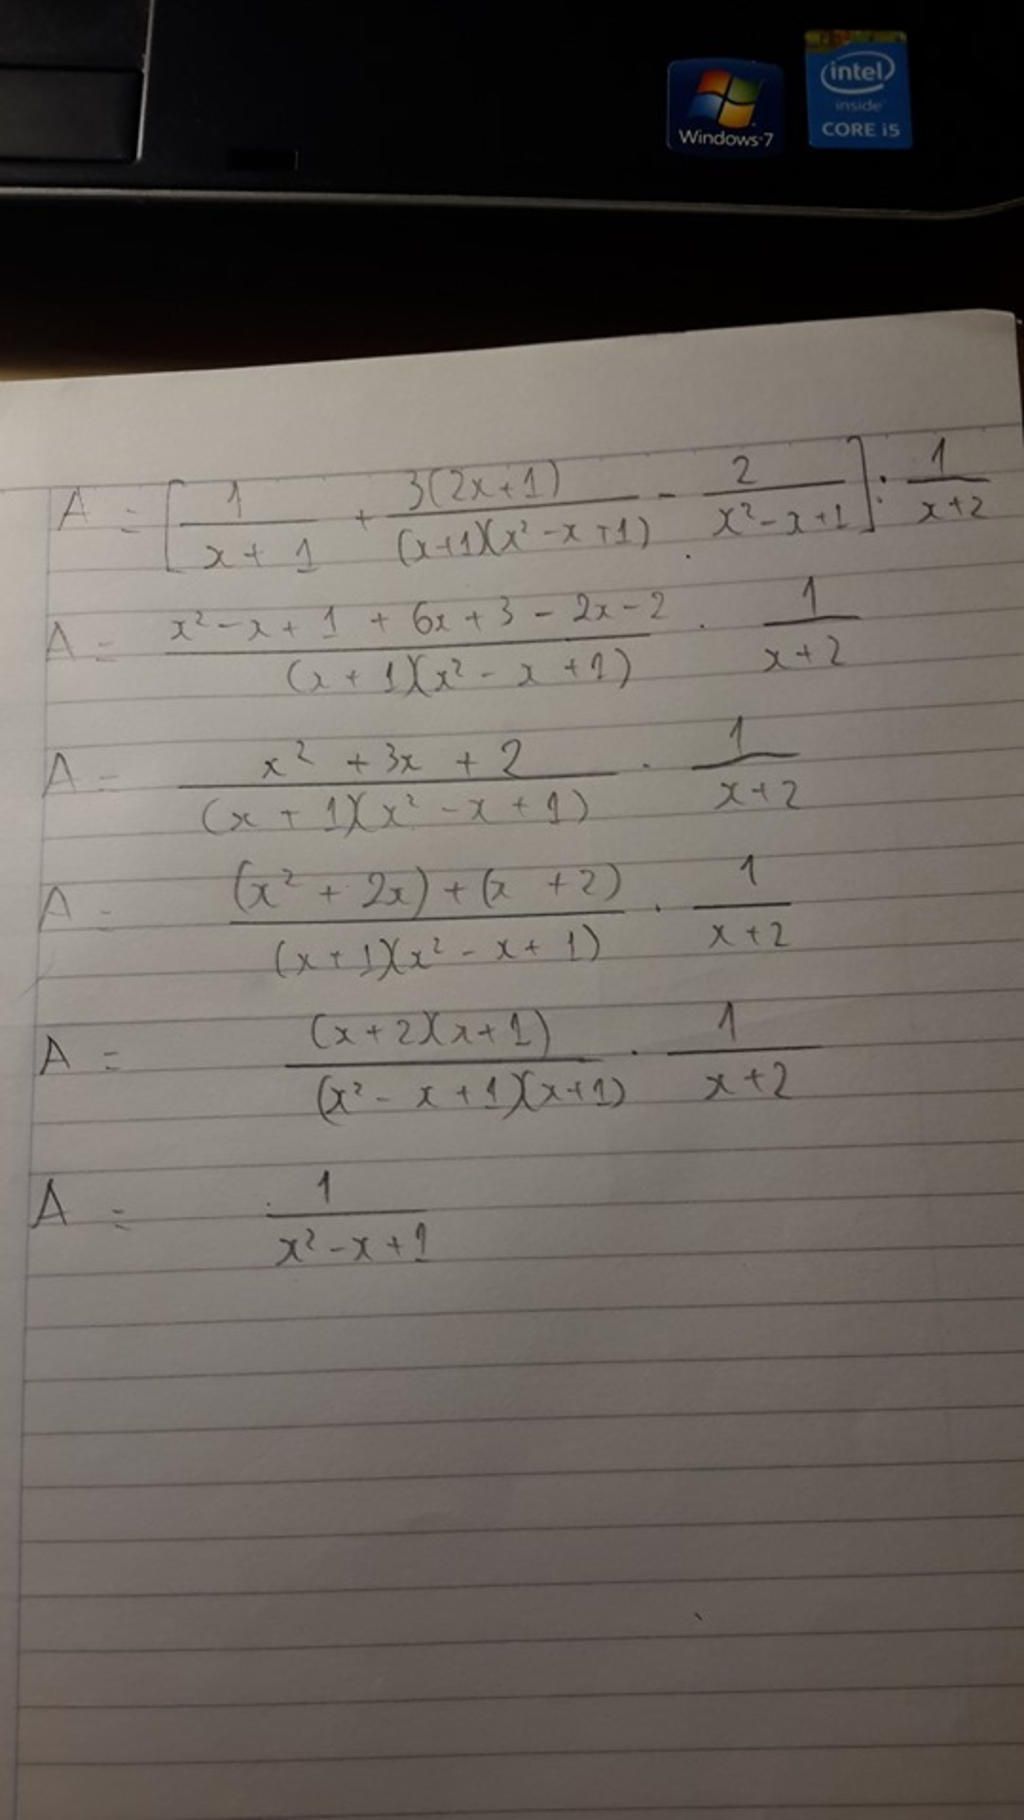 Windows 7
intel
inside
CORE i5
A = [1/(x + 1) + 3(2x+1)/((x+1)(x² - x + 1)) - 2/(x² - x + 1)] : 1/(x+2)
A = (x² - x + 1 + 6x + 3 - 2x - 2)/((x + 1)(x² - x + 1)) . 1/(x+2)
A = (x² + 3x + 2)/((x + 1)(x² - x + 1)) . 1/(x+2)
A = ((x² + 2x) + (x + 2))/((x+1)(x² - x + 1)) . 1/(x+2)
A = ((x+2)(x+1))/((x² - x + 1)(x+1)) . 1/(x+2)
A = 1/(x² - x + 1)